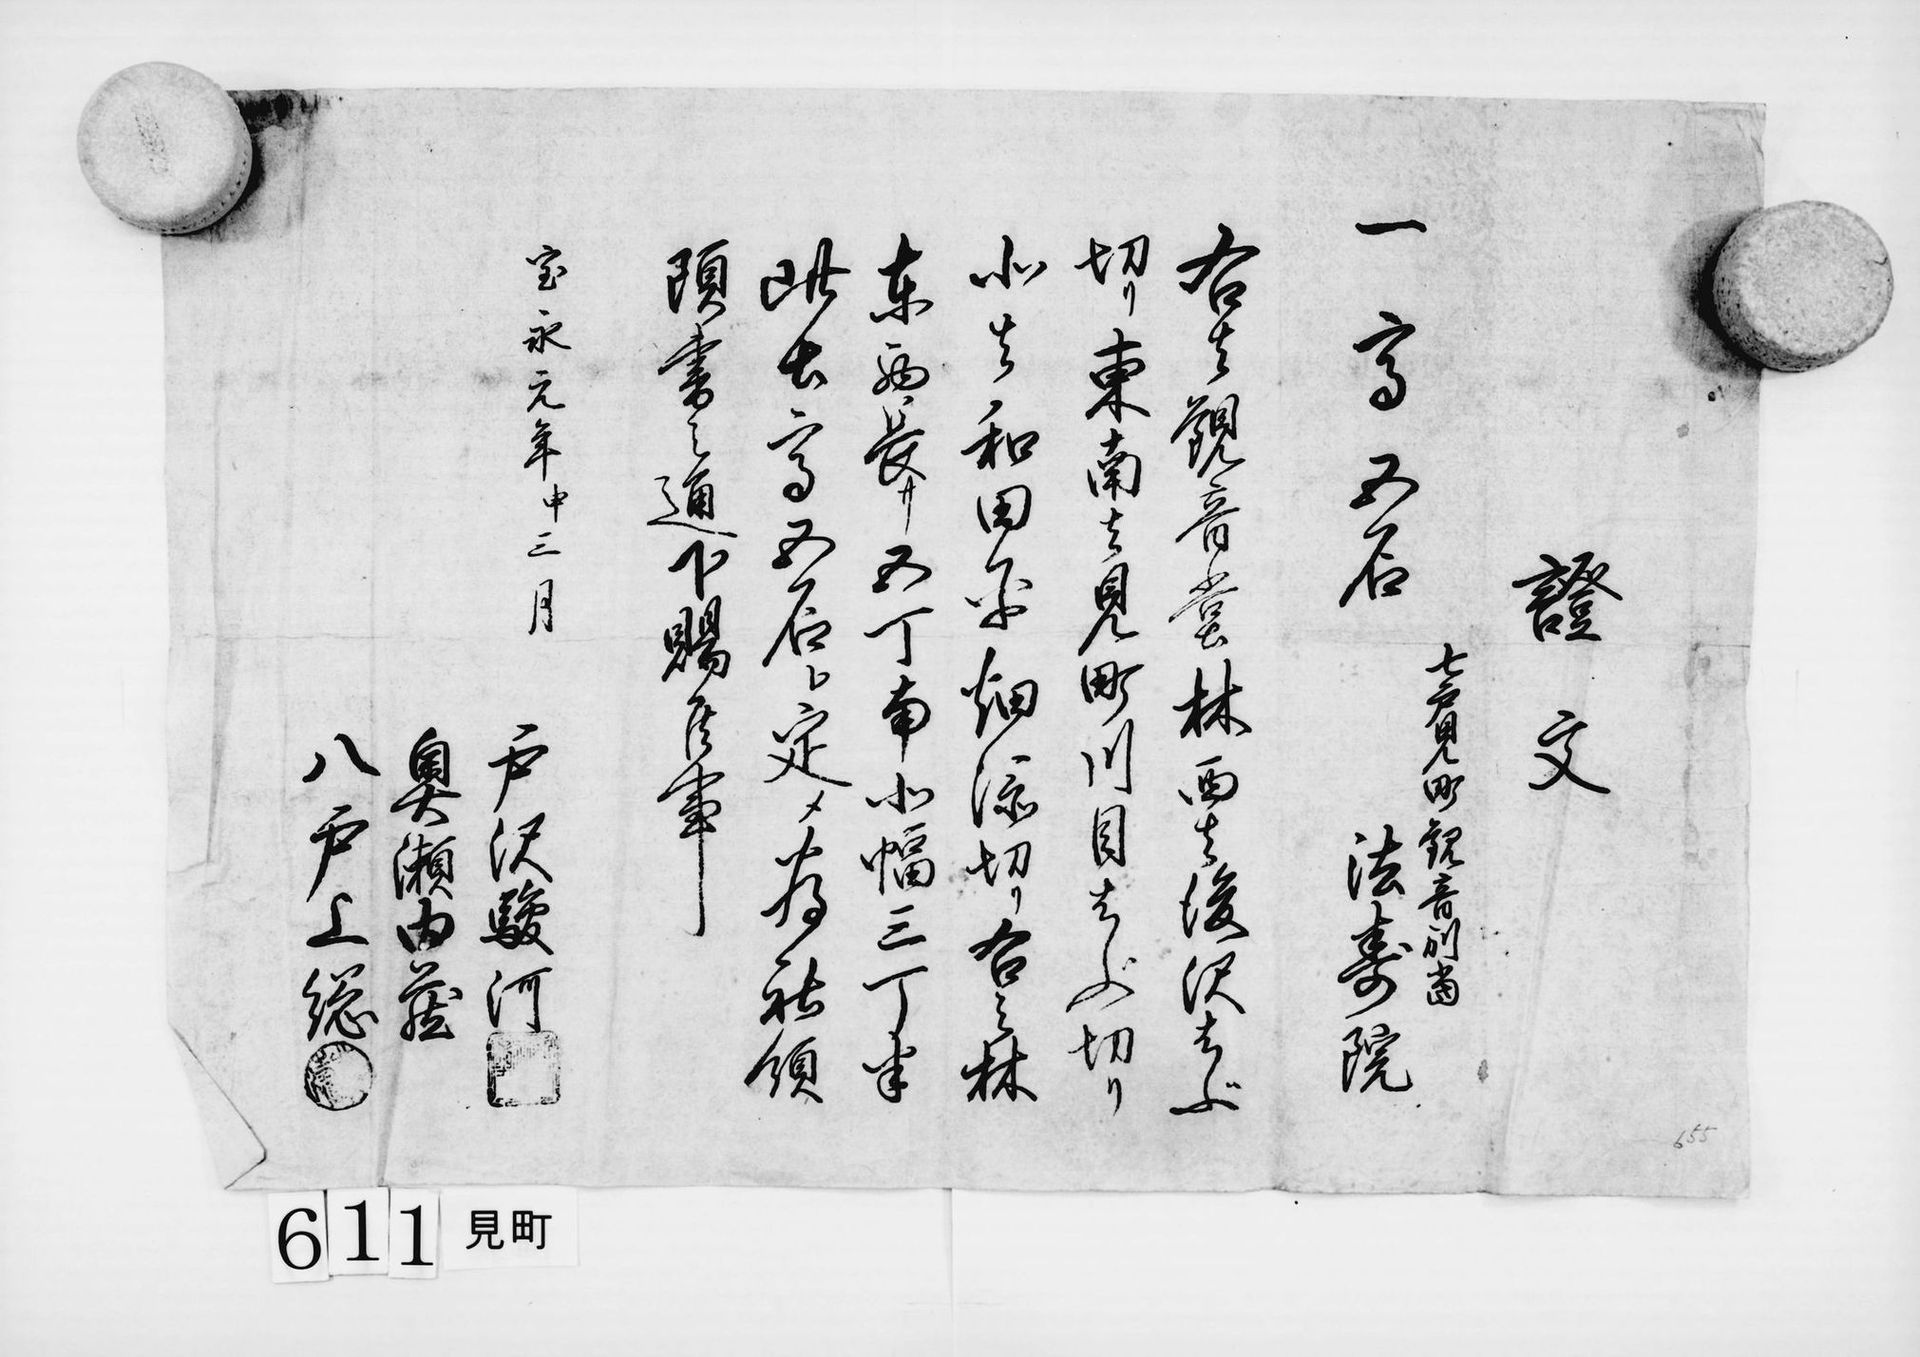 證文
一高五石
七戸見町観音別当
法寿院
右者観音堂林西者後沢を
切リ東南者見町川目を切リ
北者和田平畑添切リ右之林
東西長サ五丁南北幅三丁半
此者高五石ト定メ社領
頭書之通下賜候事
宝永元年申三月
戸沢駿河
奥瀬内蔵
八戸上総
655
611 見町